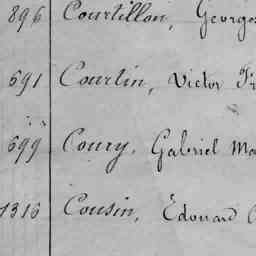 896 Courtillon, George
591 Courtin, Victor Fr
599 Coury, Gabriel Ma
1316 Cousin, Edouard